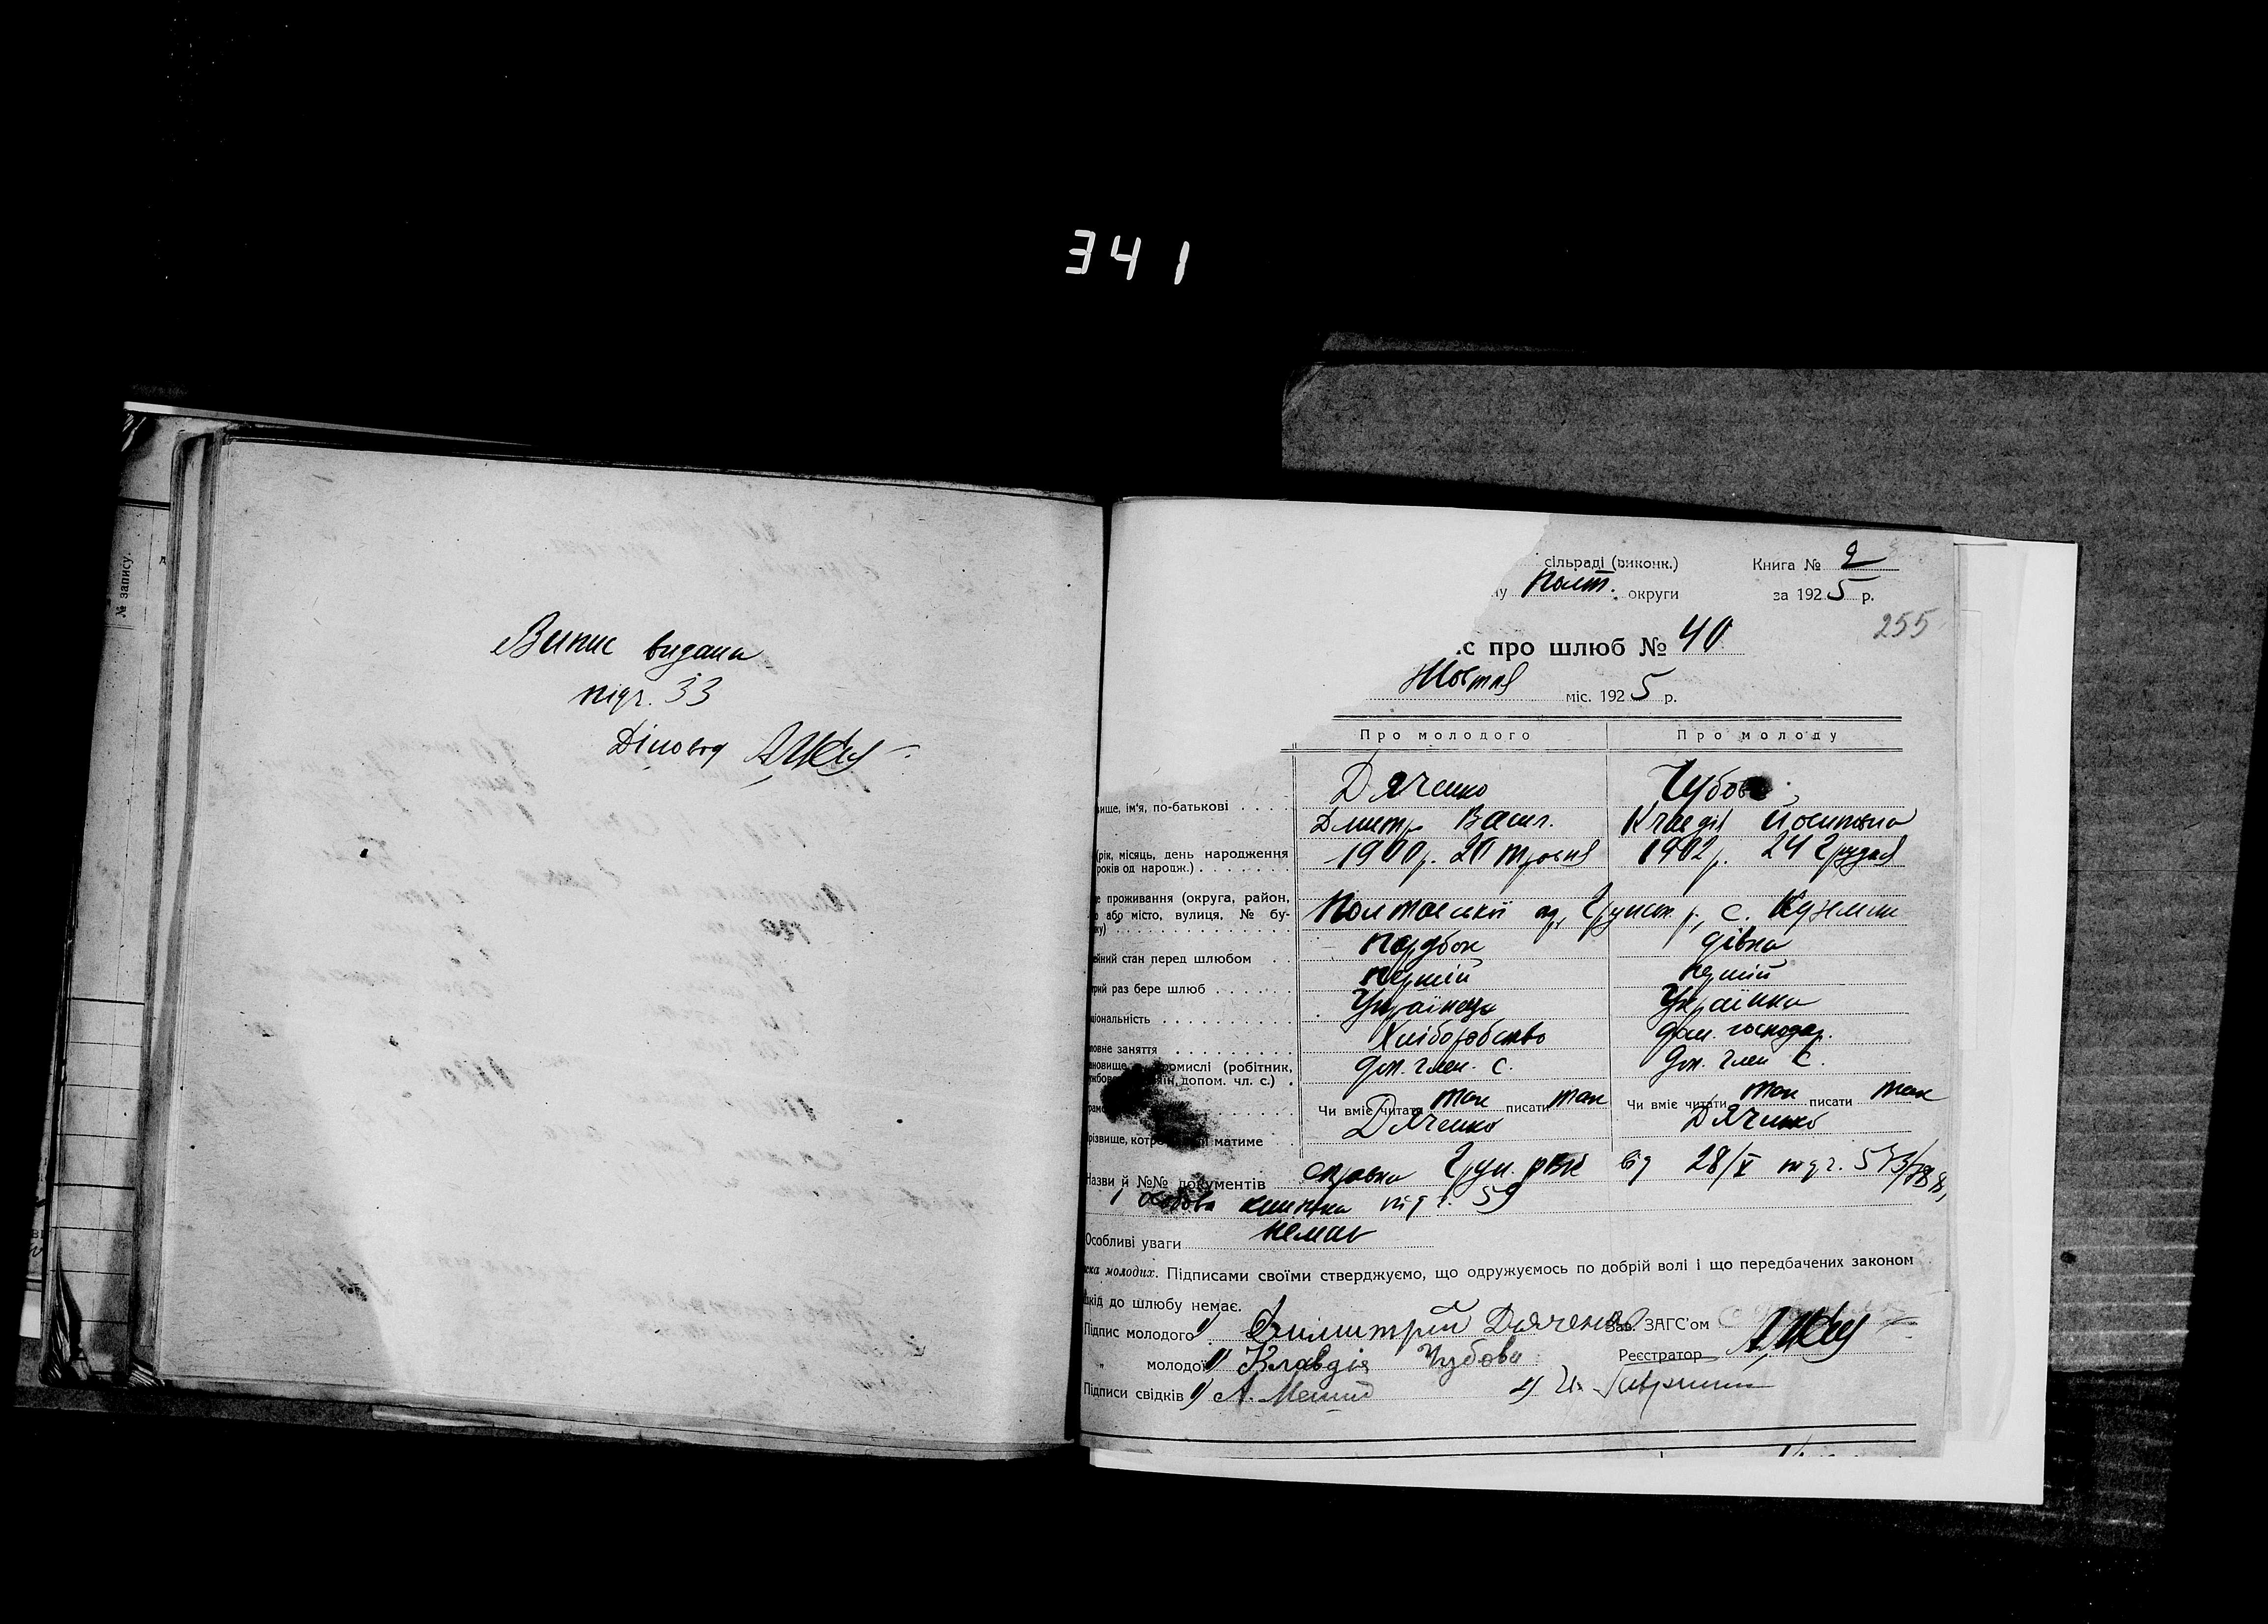 341
№ запису.
Випис видана
підг. 33
Діловод
сільраді (виконк.) Книга № 2
Полт. округи за 1925 р.
255
с про шлюб № 40
Жовтня міс. 1925 р.
Про молодого Про молоду
вище, ім'я, по-батькові . . . . Дяченко Чубова
Дмитр Васил. Клавдія Йосипівна
(рік, місяць, день народження 1900 р. 20 травня 1902 р. 24 Грудня
років од народж.) . . . . . . .
е проживання (округа, район,
о або місто, вулиця, № бу- Полтавської ок, Грунськ р., с.
ку) . . . . . . . . . . . . . .
ейний стан перед шлюбом . . парубок дівка
трий раз бере шлюб . . . . . . перший перший
ціональність . . . . . . . . . Українець Українка
ловне заняття . . . . . . . . . Хліборобство дом. господар.
ановище в промислі (робітник, доп. член. с. доп. член с.
жбов ін, допом. чл. с.) .
Чи вміє читати так писати так Чи вміє читати так писати так
різвище, котре матиме Дяченко Дяченко
Назви й №№ документів справка Грун. РВК від 28/X підг. 573/
і особова книжка підг. 59
Особливі уваги немає
ска молодих. Підписами своїми стверджуємо, що одружуємось по добрій волі і що передбачених законом
шкід до шлюбу немає.
Підпис молодого 1) Димитрий Дяченко Зав. ЗАГС'ом
„ молодої 1) Клавдія Чубова Реєстратор
Підписи свідків 1) А. 2)